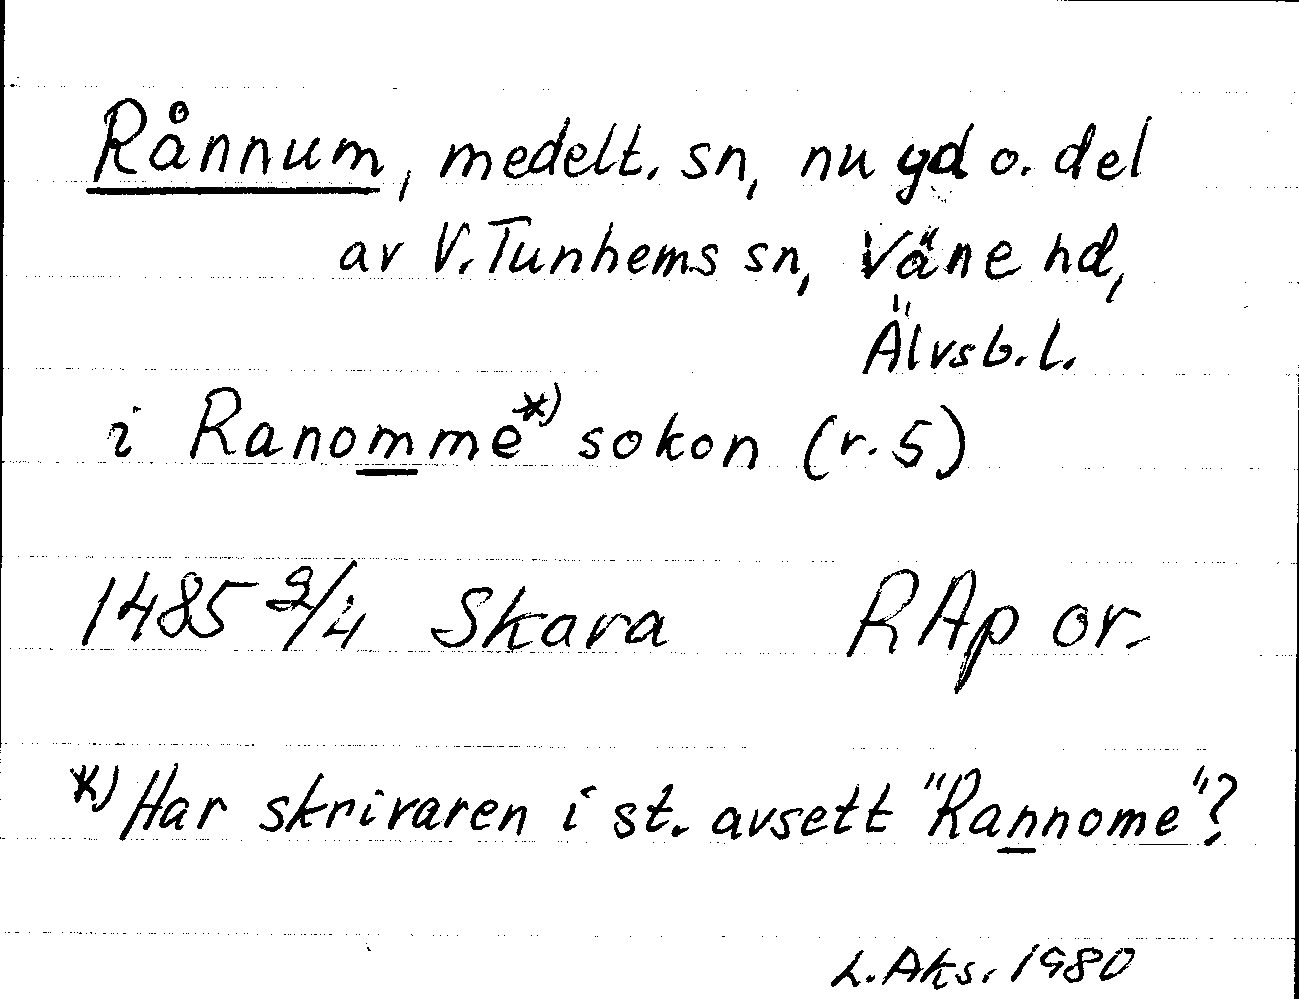 Rånnum, medelt. sn, nu gd o. del
av V. Tunhems sn, Väne hd,
Älvsb. l.
i Ranomme *) sokon (r. 5)
1485 9/4 Skara RAp or.
*) Har skrivaren i st. avsett "Rannome"?
L. Aks. 1980